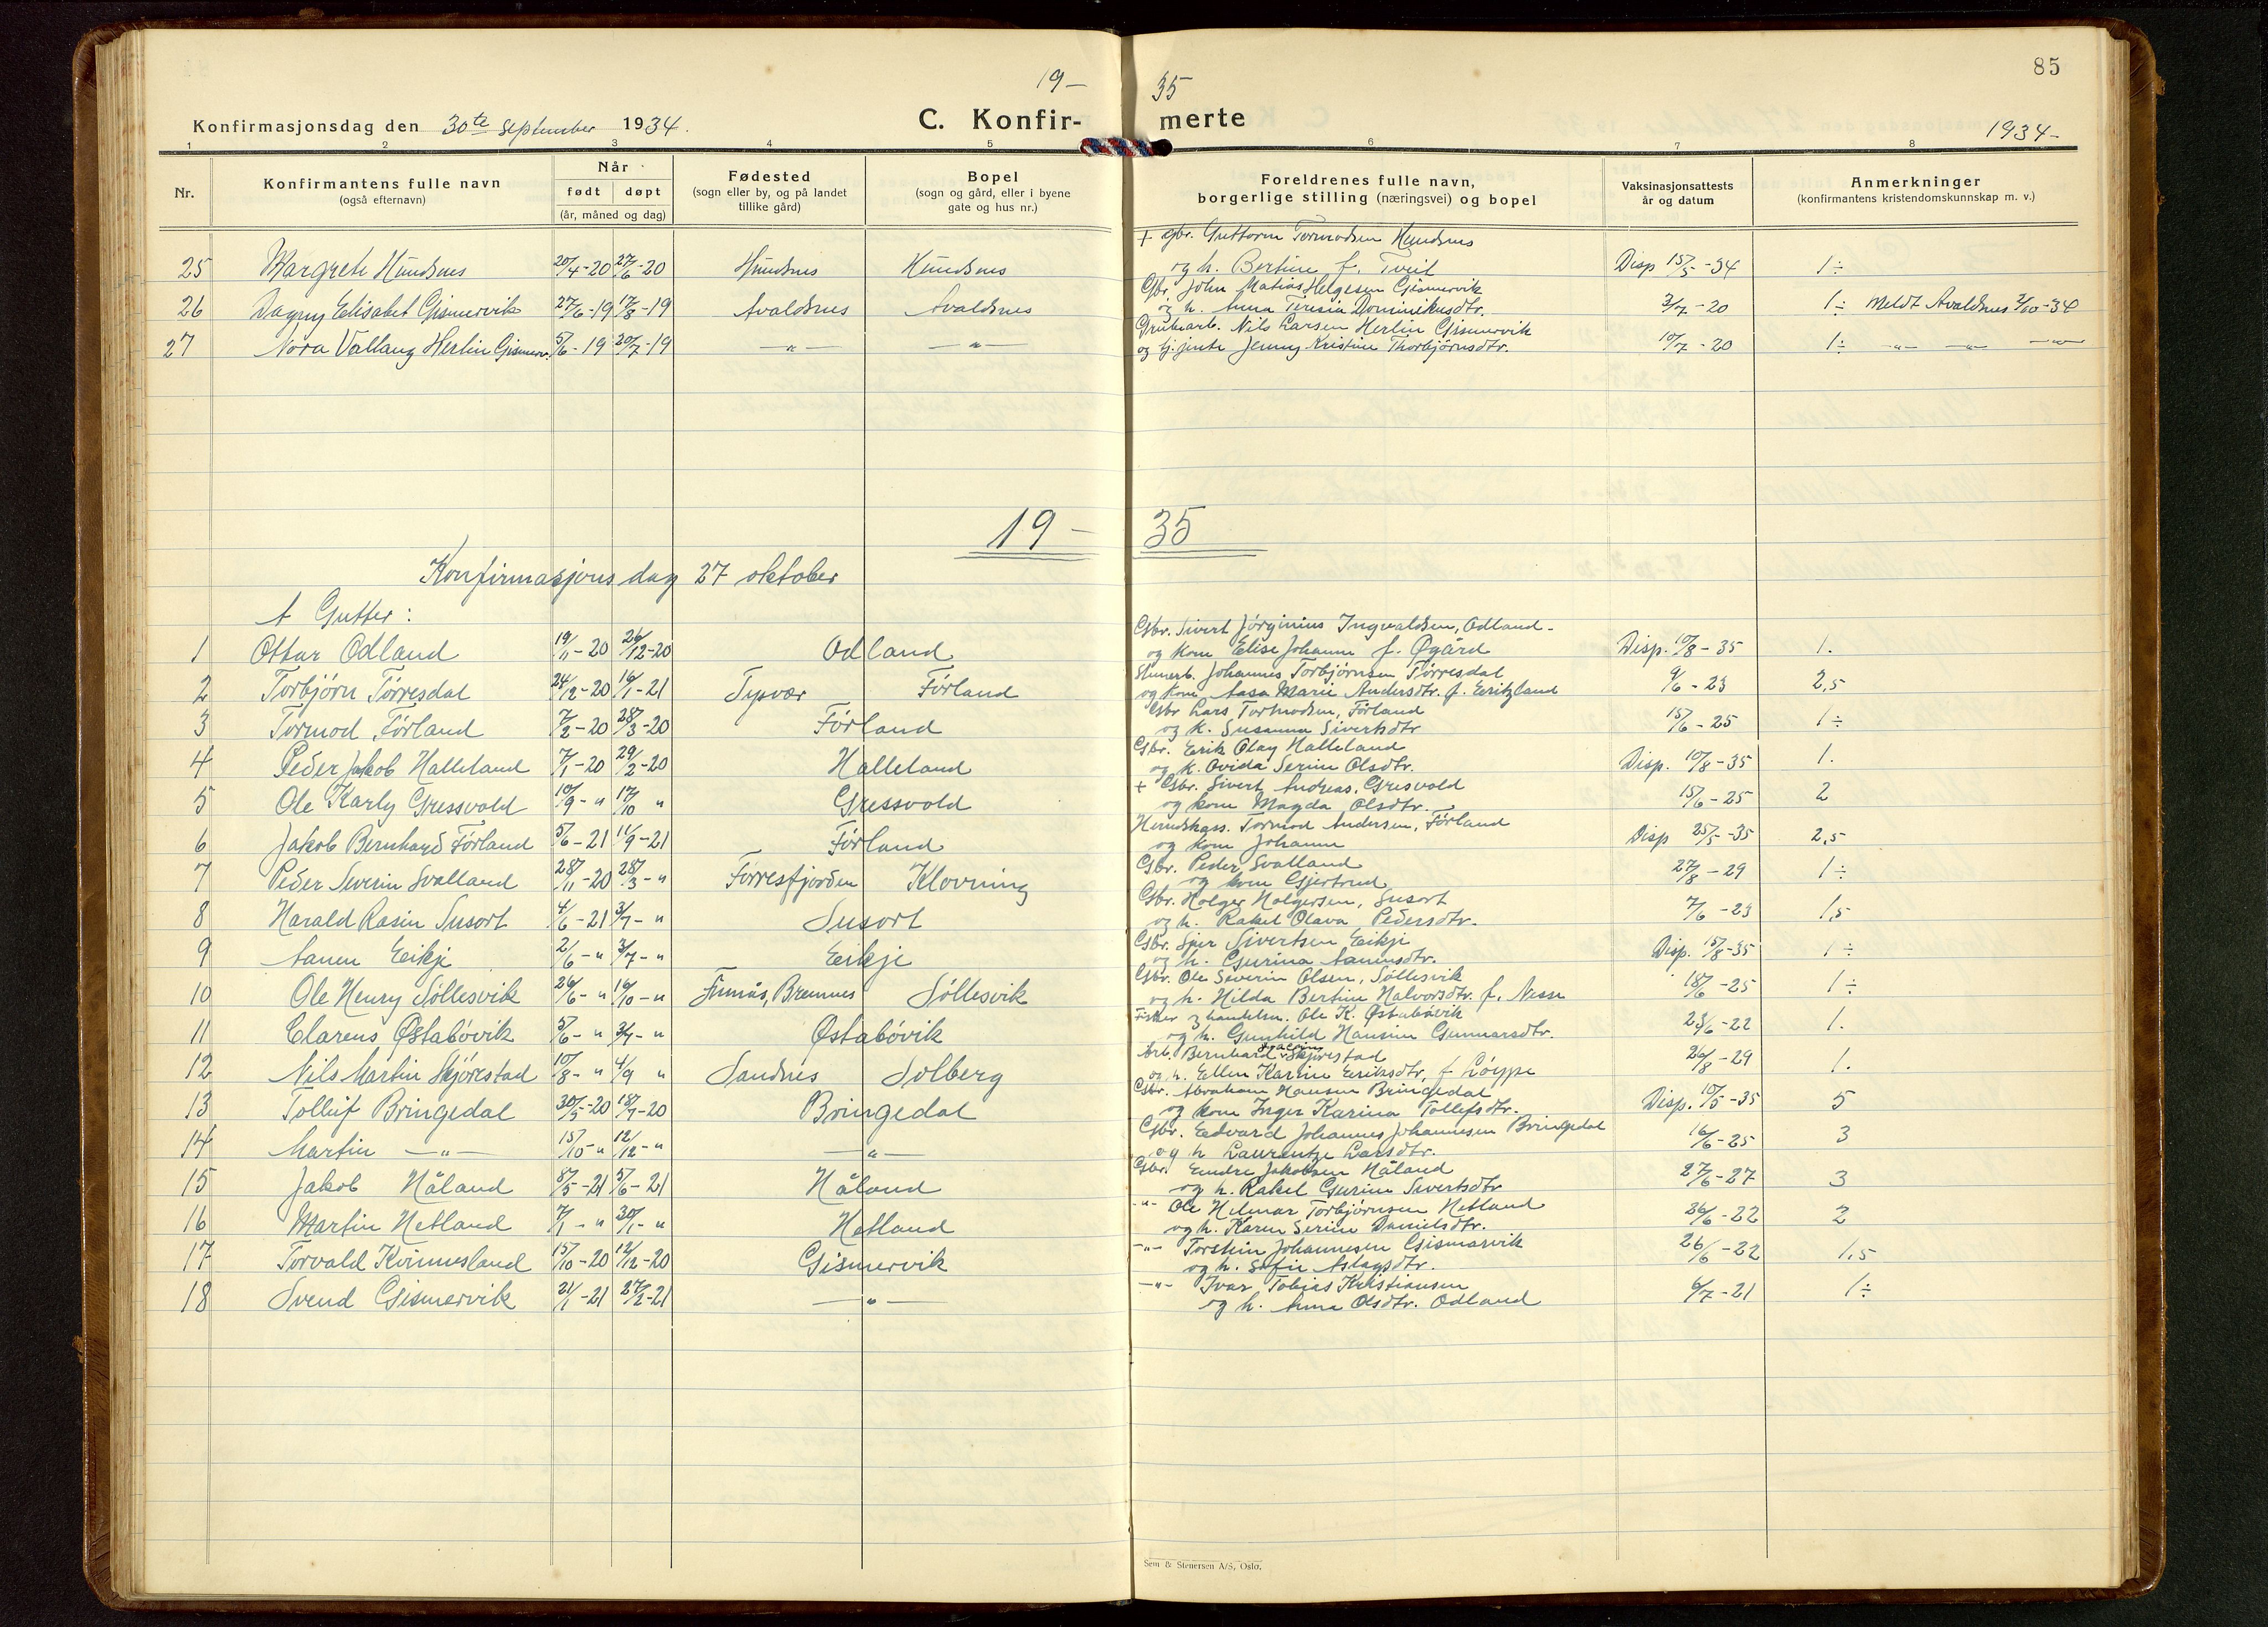 85
19–
35
Konfirmasjonsdag den 30te september 1934.
C. Konfir-
merte
1934–
1 2 3 4 5 6 7 8
Nr.
Konfirmantens fulle navn
(også efternavn)
Når
født døpt
(år, måned og dag)
Fødested
(sogn eller by, og på landet
tillike gård)
Bopel
(sogn og gård, eller i byene
gate og hus nr.)
Foreldrenes fulle navn,
borgerlige stilling (næringsvei) og bopel
Vaksinasjonsattests
år og datum
Anmerkninger
(konfirmantens kristendomskunnskap m. v.)
+ gbr. Guttorm Tormodsen Hundsnes
25 Margrete Hundsnes 20/4-20 27/6-20 Hundsnes Hundsnes og h. Bertine f. Tveit Disp 15/5-34 1÷
Gbr. John Matias Helgesen Gismervik
26 Dagny Elisabet Gismervik 27/6-19 17/8-19 Avaldsnes Avaldsnes og h. Anna Teresia Dominikusdtr. 3/7-20 1÷ Meldt Avaldsnes 2/10-34
Grubearb. Nils Larsen Herlin Gismervik
27 Nora Vallang Herlin Gismerv. 5/6-19 20/7-19 —"— —"— og tj.jente Jenny Kristine Thorbjørnsdtr. 10/7-20 1÷ —"— —"— —"—
19–
35
Konfirmasjonsdag 27 oktober
A Gutter:
Gbr. Sivert Jørginius Ingvaldsen, Odland-
1 Ottar Odland 19/11-20 26/12-20 Odland og kone Elise Johanne f. Øgård Disp. 10/8-35 1.
Johannes Torbjørnsen Tørresdal
2 Torbjørn Tørresdal 24/12-20 16/1-21 Tysvær Førland og kone Aasa Marie Andersdtr. f. 9/6-23 2,5
Gbr Lars Tormodsen, Førland
3 Tormod Førland 7/2-20 28/3-20 Førland og k. Susanna Sivertsdtr 15/6-25 1÷
Gbr. Erik Olay Halleland
4 Peder Jakob Halleland 7/1-20 29/2-20 Halleland og k. Ovida Serine Olsdtr. Disp. 10/8-35 1.
+ Gbr. Sivert Andreas Gresvold
5 Ole Karly Gressvold 10/9-" 17/10 " Gressvold og kone Magda Olsdtr. 15/6-25 2
Tormod Andersen, Førland
6 Jakob Bernhard Førland 5/6-21 11/9-21 Førland og kone Johanne Disp 25/5-35 2,5
Gbr. Peder Svalland
7 Peder Severin Svalland 28/11-20 28/3-" Førresfjorden Klovning og kone Gjertrud 27/8-29 1÷
Gbr. Holger Holgersen, Susort
8 Harald Rasin Susort 4/6-21 3/7-" Susort og h. Rakel Olava Pedersdtr. 7/6-23 1,5
Gbr. Sjur Sivertsen Eikje
9 Aanen Eikje 2/6-" 3/7-" Eikje og h. Gurina Aanensdtr. Disp. 15/8-35 1÷
Gbr. Ole Severin Olsen, Søllesvik
10 Ole Henry Søllesvik 26/6-" 16/10-" Finnås, Bremnes Søllesvik og h. Hilda Bertine Halvorsdtr. f. Nesse 18/6-25 1÷
Fisker og handelsm. Ole K. Østabøvik
11 Clarens Østabøvik 5/6-" 3/7-" Østabøvik og h. Gunhild Hansine Gunnarsdtr. 23/6-22 1.
Arb. Bernhard Skjørestad
12 Nils Martin Skjørestad 10/8-" 4/9 " Sandnes Solberg og h. Ellen Karine Eriksdtr. f Løyppe 26/8-29 1.
Gbr. Abraham Hansen Bringedal
13 Tolluf Bringedal 30/5-20 18/7-20 Bringedal og kone Inger Karina Tollefsdtr. Disp. 10/5-35 5
Gbr. Edvard Johannes Johannesen Bringedal
14 Martin —"— 15/10-" 12/12-" —"— og h Laurentze Larsdtr. 16/6-25 3
Gbr. Endre Jakobsen Håland
15 Jakob Håland 8/5-21 5/6-21 Håland og h. Rakel Gurine Sivertsdtr 27/6-27 3
-"- Ole Helmar Torbjørnsen Hetland
16 Martin Hetland 7/1-" 30/1-" Hetland og h. Karen Serine Danielsdtr. 26/6-22 2
-"- Torstein Johannesen Gismarvik
17 Torvald Kvinnesland 15/10-20 12/12-20 Gismervik og h. Sofie Aslagsdtr. 26/6-22 1,5
-"- Ivar Tobias Kristiansen
18 Svend Gismervik 21/1-21 27/2-21 —"— og h. Anna Olsdtr. Odland 6/7-21 1÷
Sem & Stenersen A/S, Oslo.